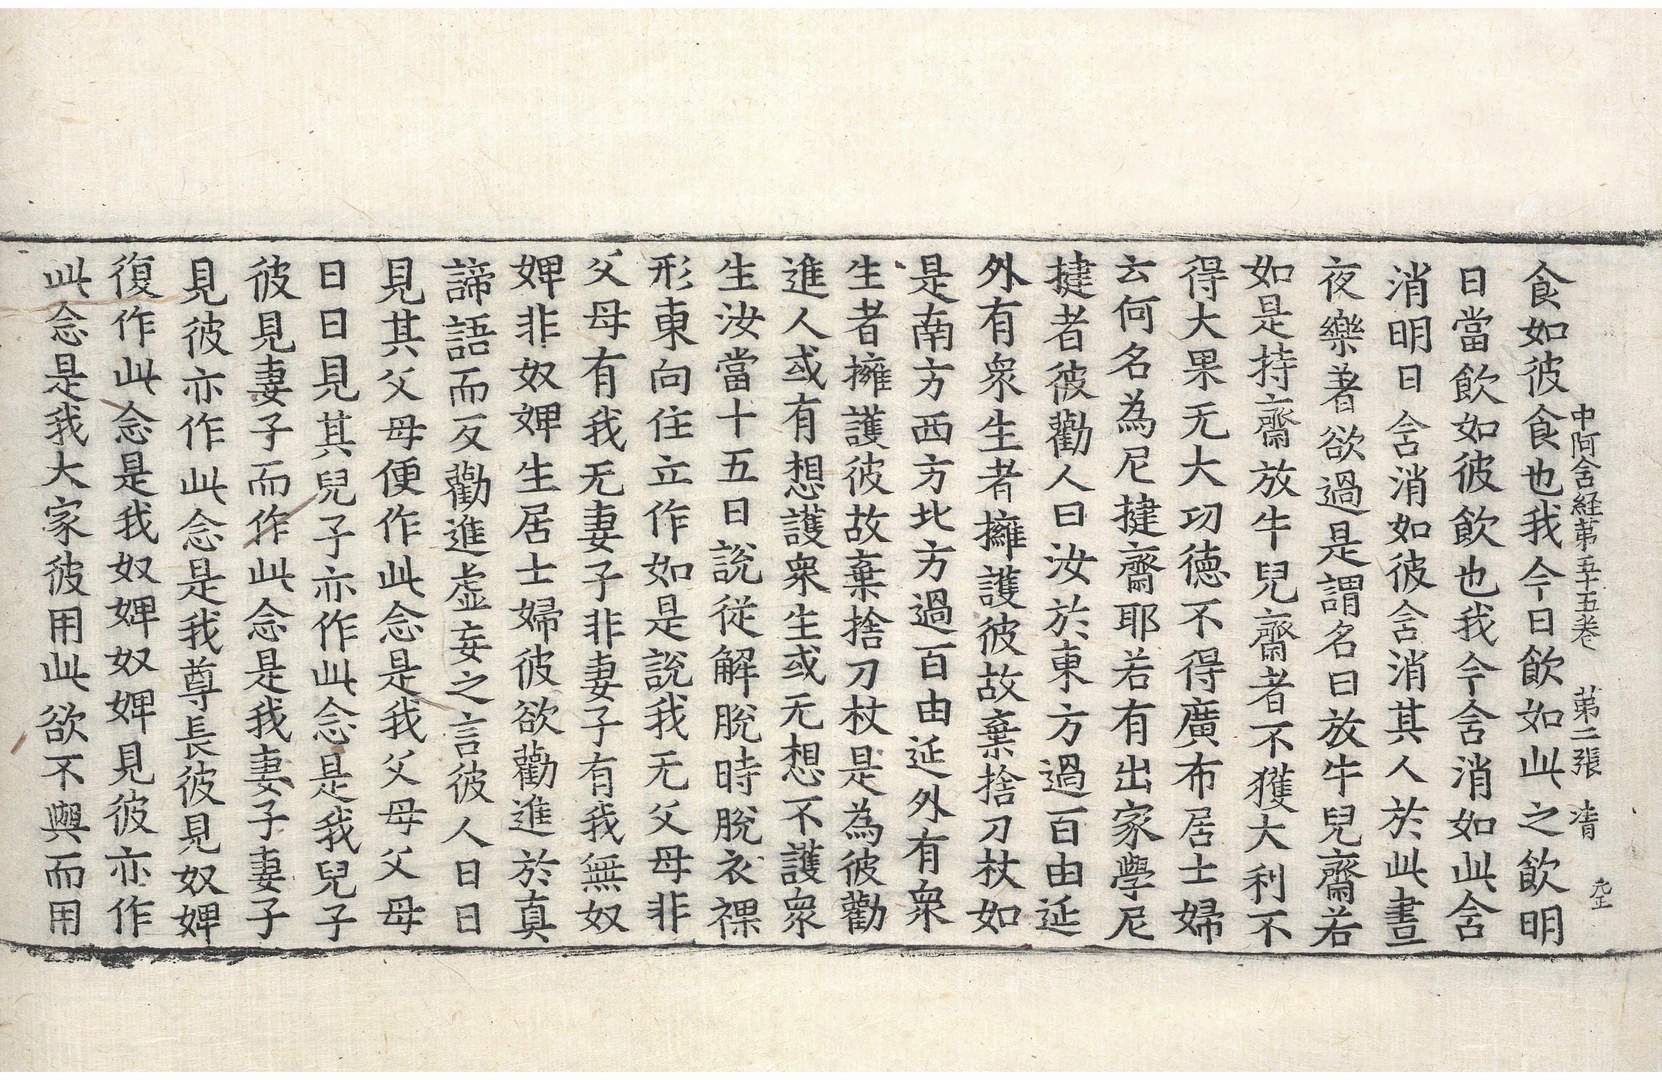 中阿含経苐五十五卷　苐二張　清
食如彼食也我今日飲如此之飲明
日當飲如彼飲也我今含消如此含
消明日含消如彼含消其人於此晝
夜樂著欲過是謂名曰放牛兒齋若
如是持齋放牛兒齋者不獲大利不
得大果无大功德不得廣布居士婦
云何名為尼揵齋耶若有出家學尼
揵者彼勸人曰汝於東方過百由延
外有衆生者擁護彼故棄捨刀杖如
是南方西方北方過百由延外有衆
生者擁護彼故棄捨刀杖是為彼勸
進人或有想護衆生或无想不護衆
生汝當十五日說從解脫時脫衣裸
形東向住立作如是說我无父母非
父母有我无妻子非妻子有我無奴
婢非奴婢生居士婦彼欲勸進於真
諦語而反勸進虛妄之言彼人日日
見其父母便作此念是我父母父母
日日見其兒子亦作此念是我兒子
彼見妻子而作此念是我妻子妻子
見彼亦作此念是我尊長彼見奴婢
復作此念是我奴婢奴婢見彼亦作
此念是我大家彼用此欲不與而用